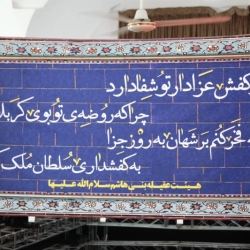 کفش عزادار تو شفا دارد
چرا که روضه‌ی تو بوی کربلا
فخر کنم بر شهان به روز جزا
به کفشداری سلطان ملک
هیئت عقیله بنی هاشم سلام الله علیها